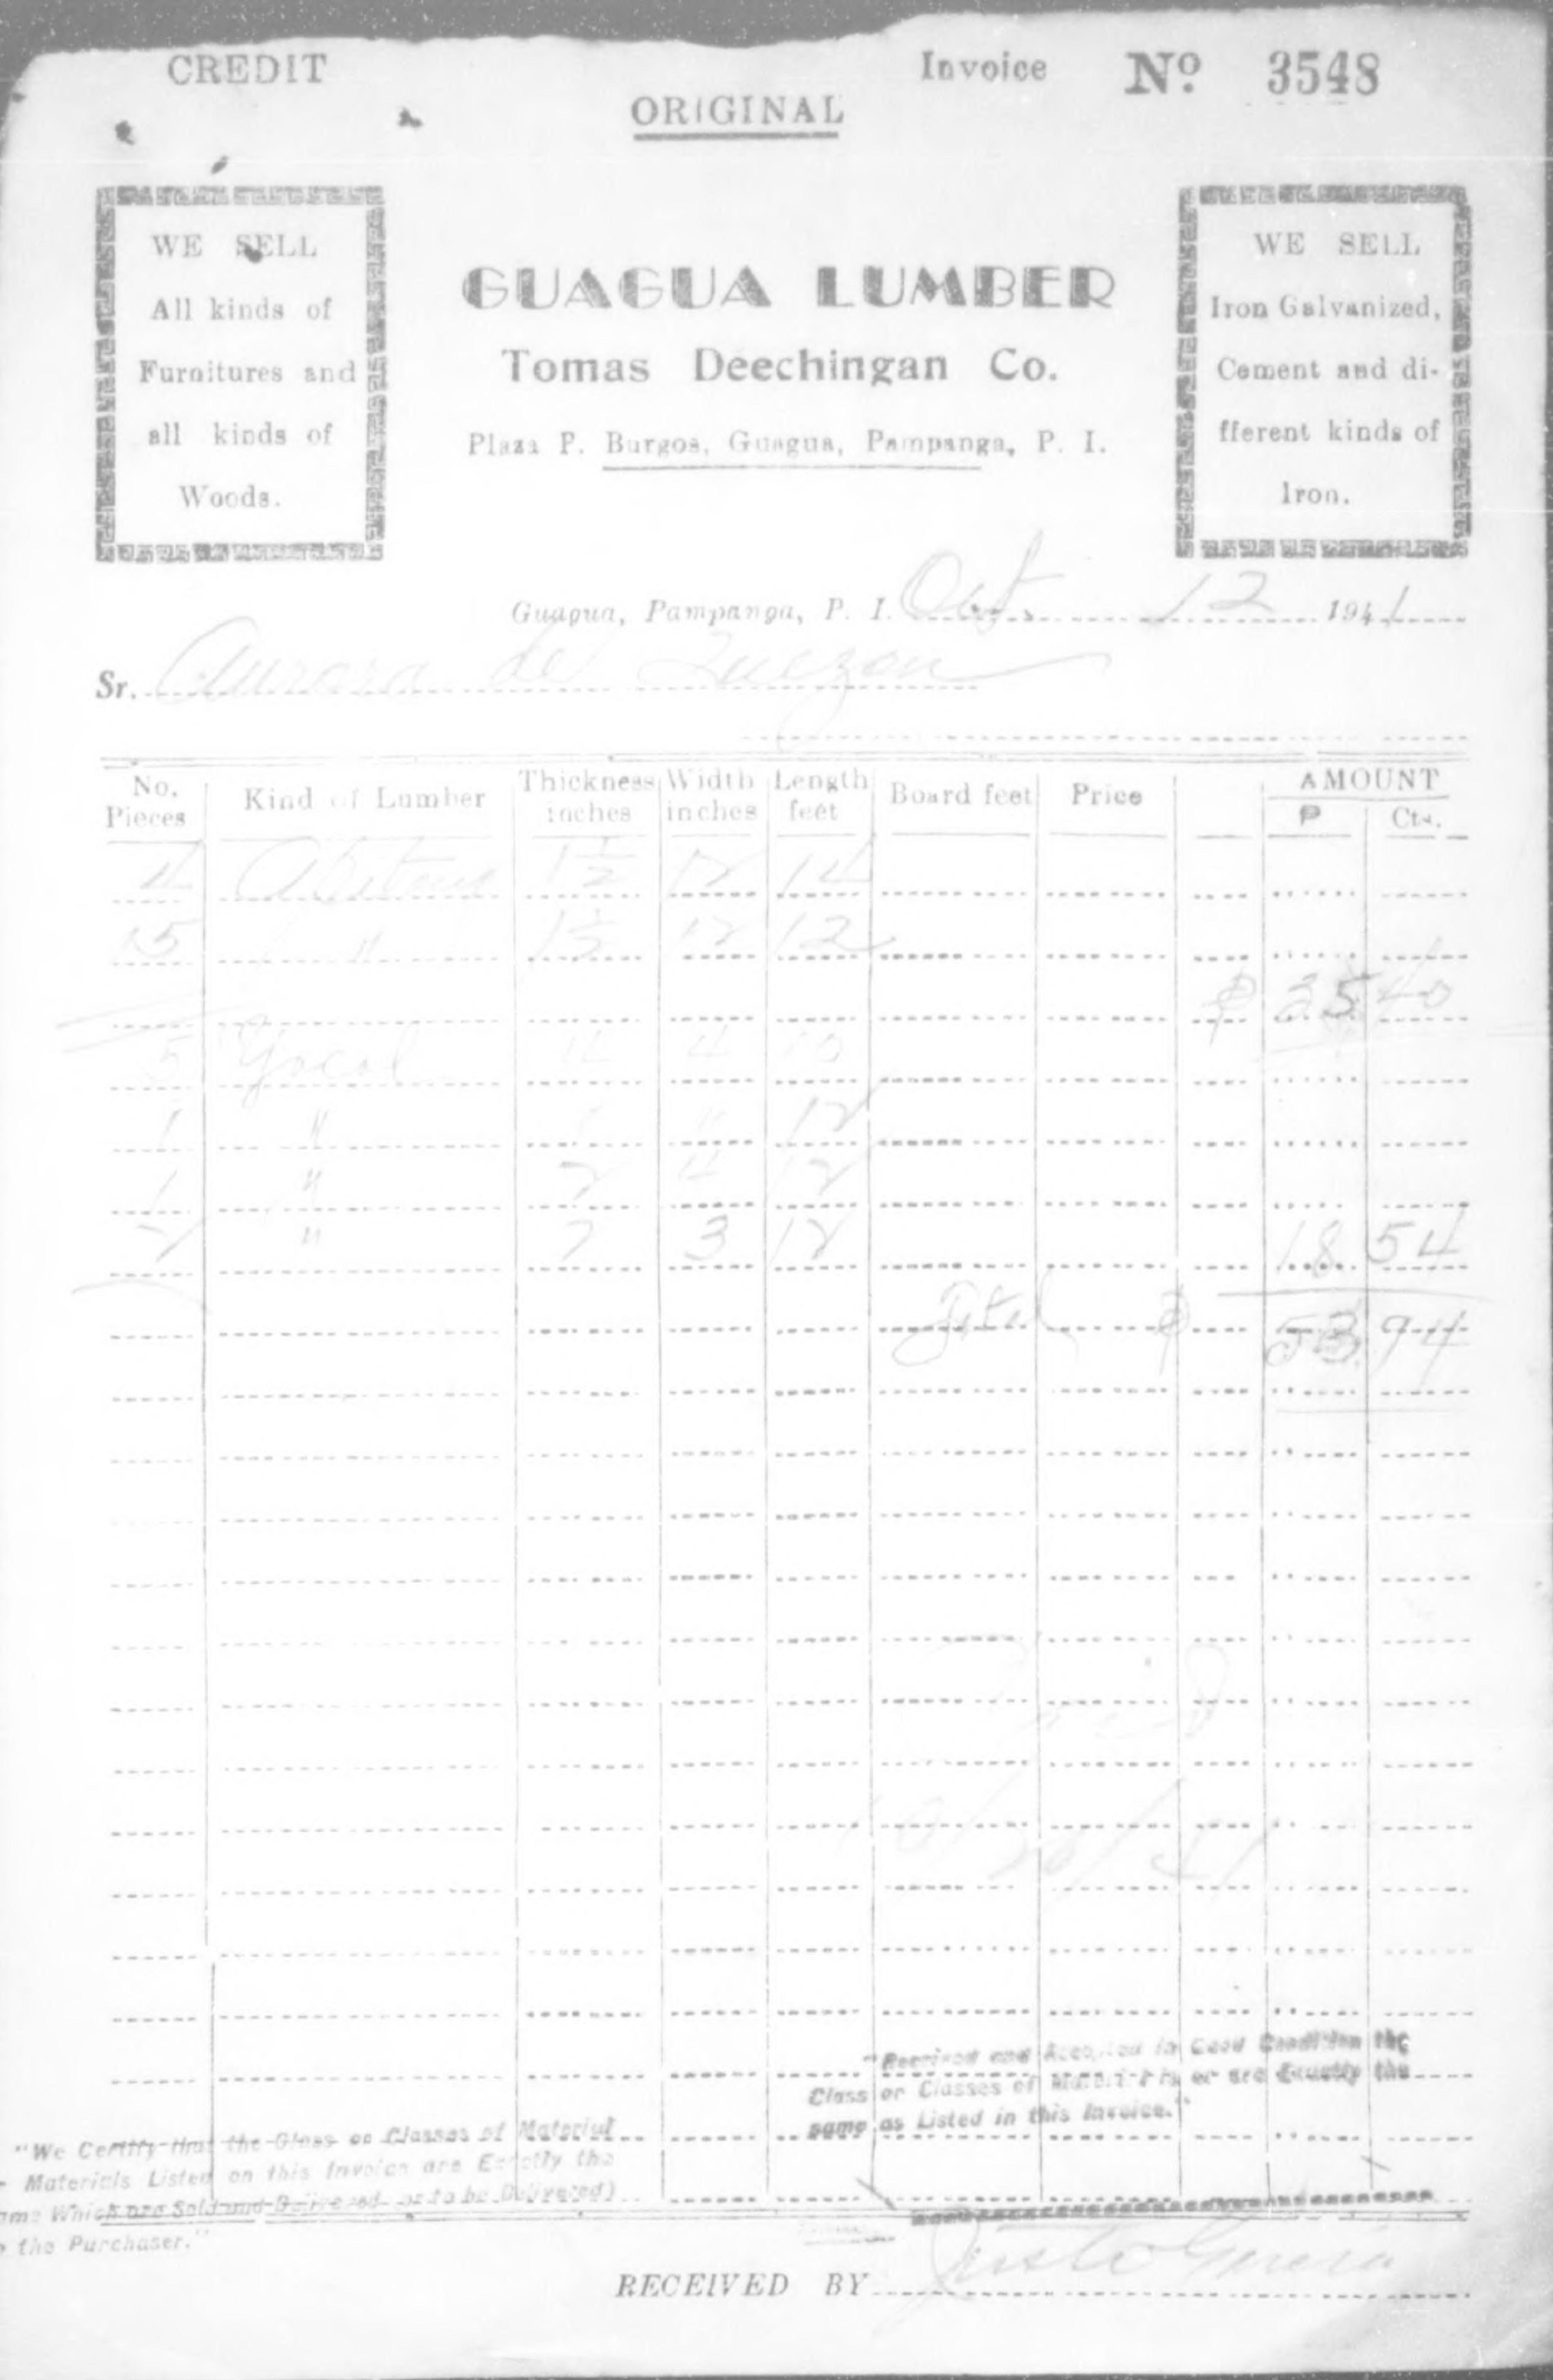 CREDIT
Invoice Nº 3548
ORIGINAL
WE SELL
All kinds of
Furnitures and
all kinds of
Woods.
GUAGUA LUMBER
Tomas Deechingan Co.
Plaza P. Burgos, Guagua, Pampanga, P. I.
WE SELL
Iron Galvanized,
Cement and di-
fferent kinds of
Iron.
Guagua, Pampanga, P. I. Oct. 12 1941
Sr. Aurora de Quezon
No. Pieces Kind of Lumber Thickness inches Width inches Length feet Board feet Price AMOUNT ₱ Cts.
4 1 1/2 12 14
15 " 1 1/2 12 12
₱ 35 40
5 Yacal 4 10
1 " 12
1 " 2 4 12
2 " 2 3 12 18 54
Total ₱ 53 94
Paid
10/20/41
"Received and Accepted in Good Condition the
Class or Classes of Materials or are Exactly the
same as Listed in this Invoice."
"We Certify that the Class or Classes of Material
Materials Listed on this Invoice are Exactly the
Which are Sold and Delivered or to be Delivered)
the Purchaser."
RECEIVED BY